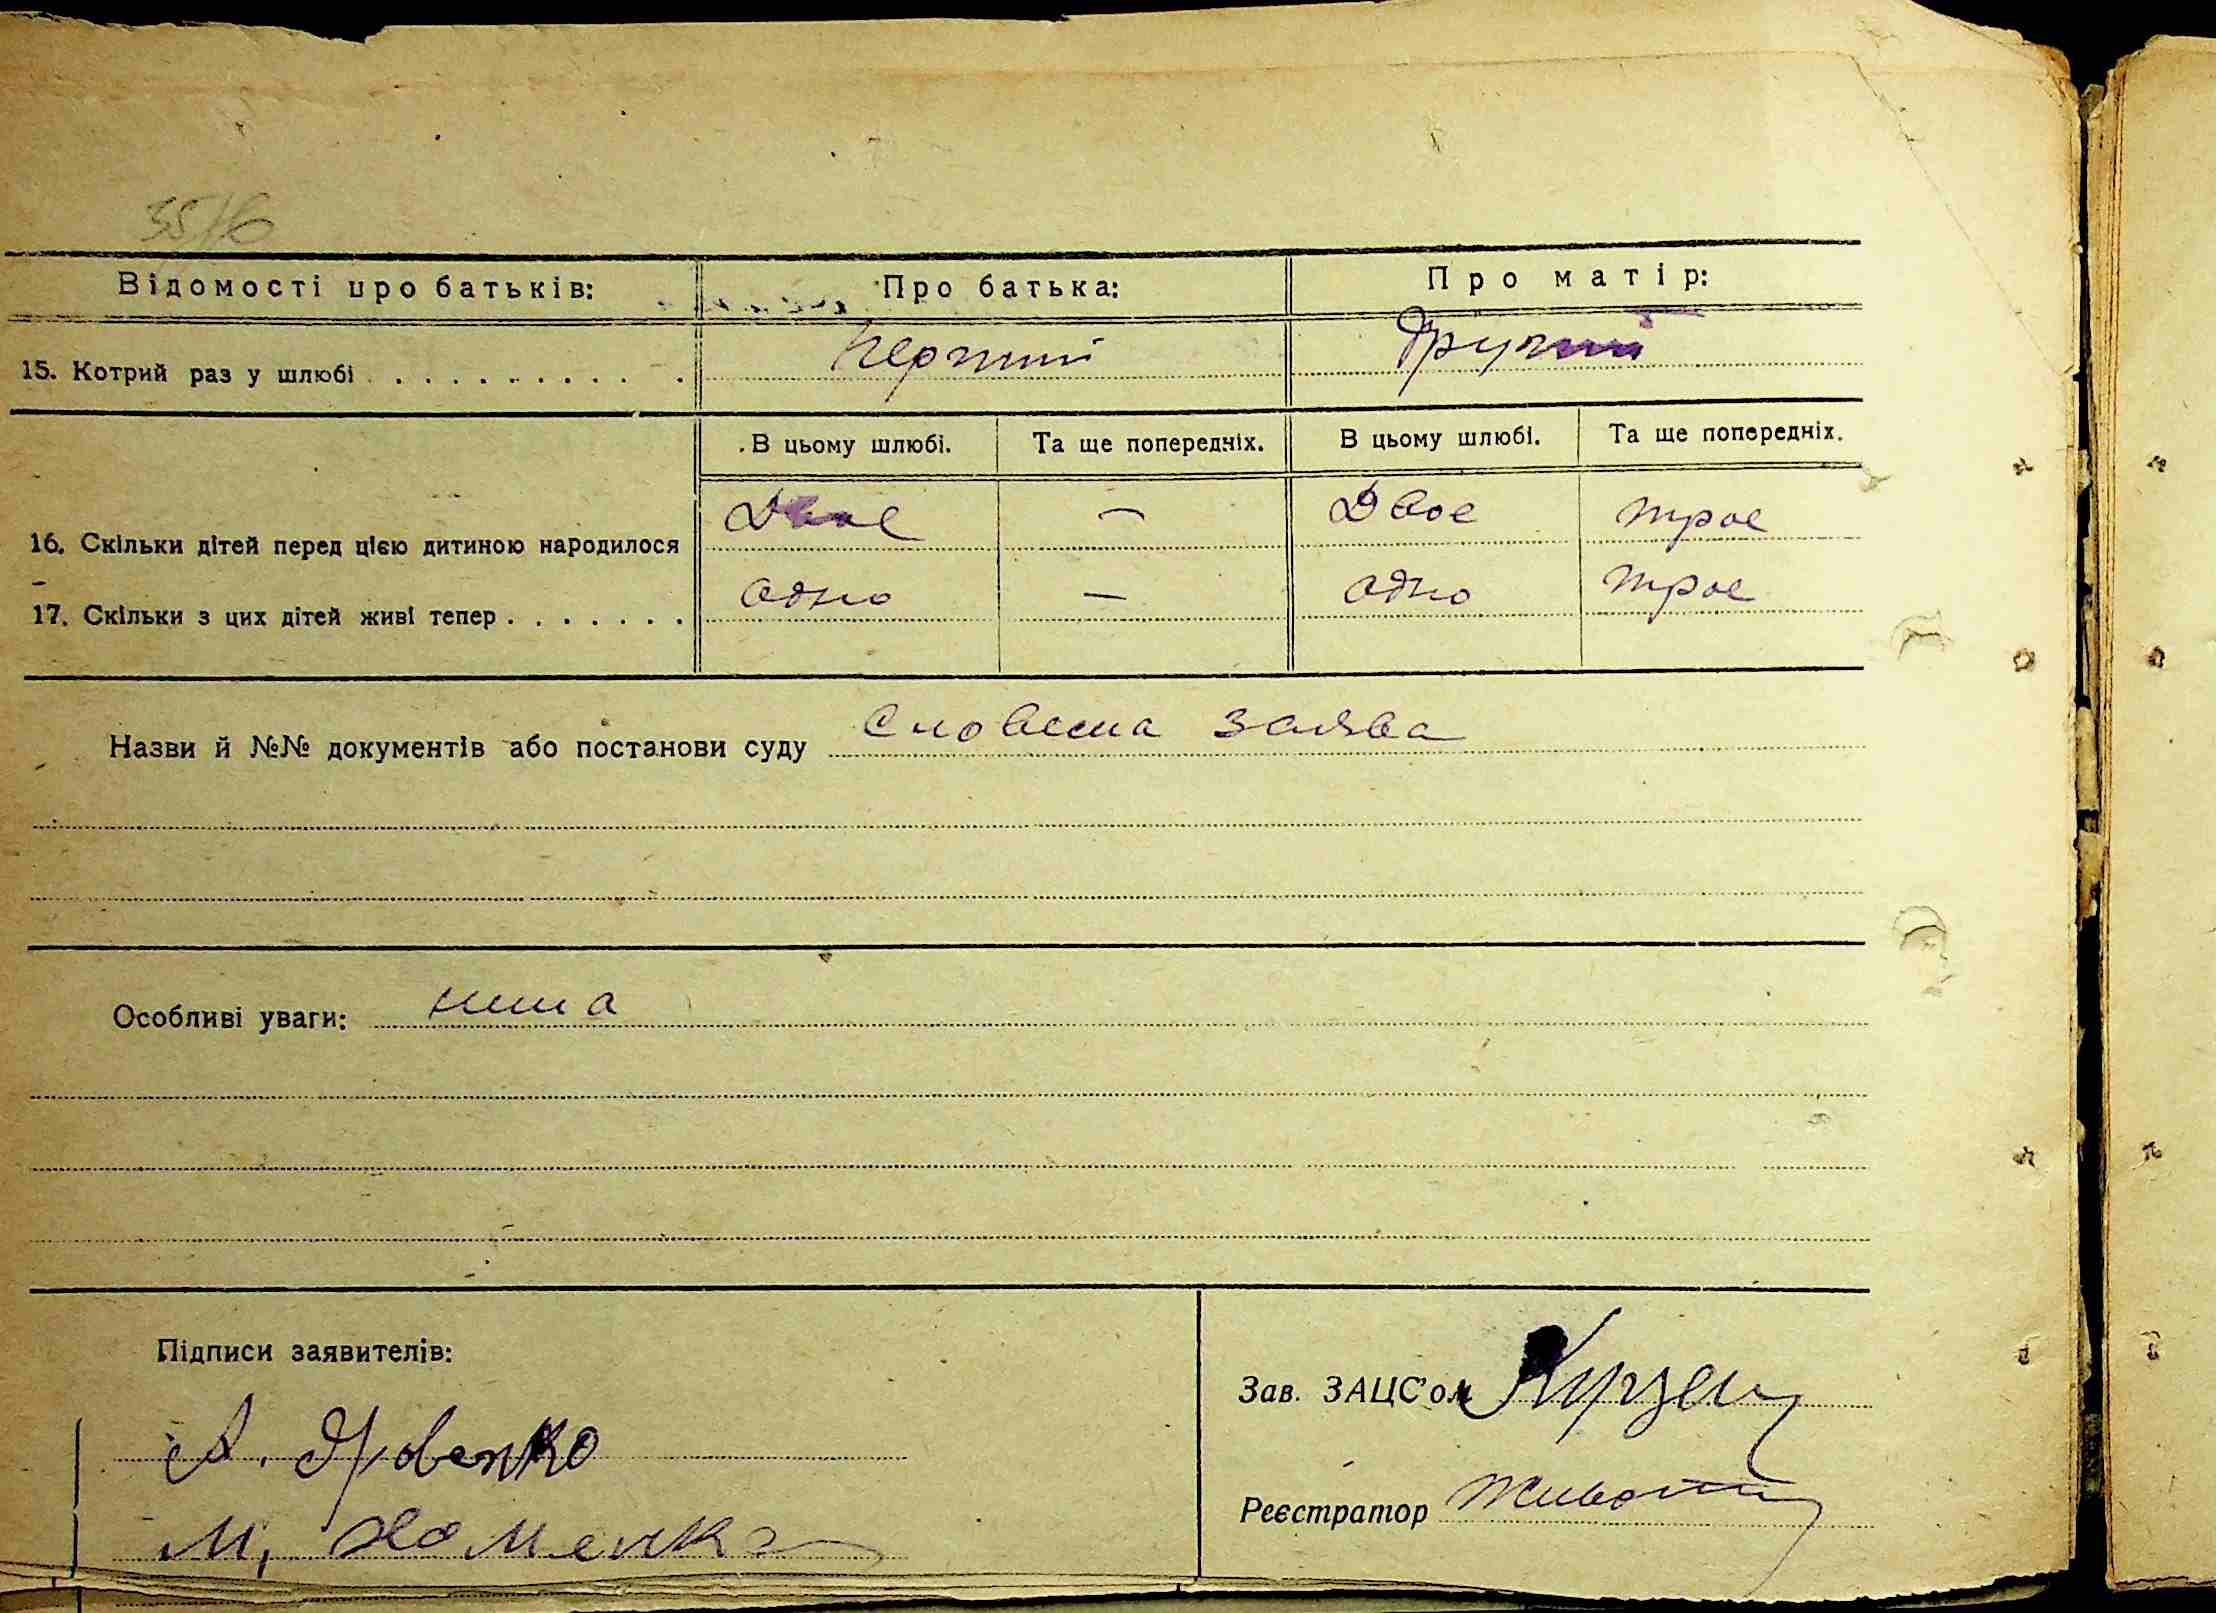 Відомості про батьків: Про батька: Про матір:
15. Котрий раз у шлюбі . . . . . . . . . . . Перший Другий
В цьому шлюбі. Та ще попередніх. В цьому шлюбі. Та ще попередніх.
16. Скільки дітей перед цією дитиною народилося Двое — Двое трое
17. Скільки з цих дітей живі тепер . . . . . . . одно — одно трое
Назви й №№ документів або постанови суду Словесна заява
Особливі уваги: нема
Підписи заявителів:
Зав. ЗАЦС'ом
А. Яровенко
Реєстратор
М. Хоменко